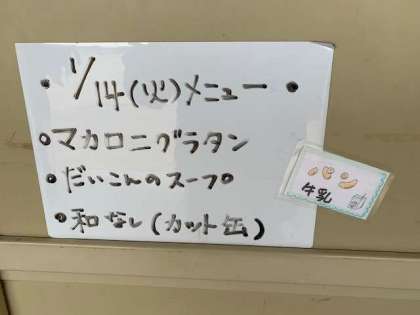 ・1/14(火)メニュー・
・マカロニグラタン
・だいこんのスープ
・和なし(カット缶)
パン
牛乳